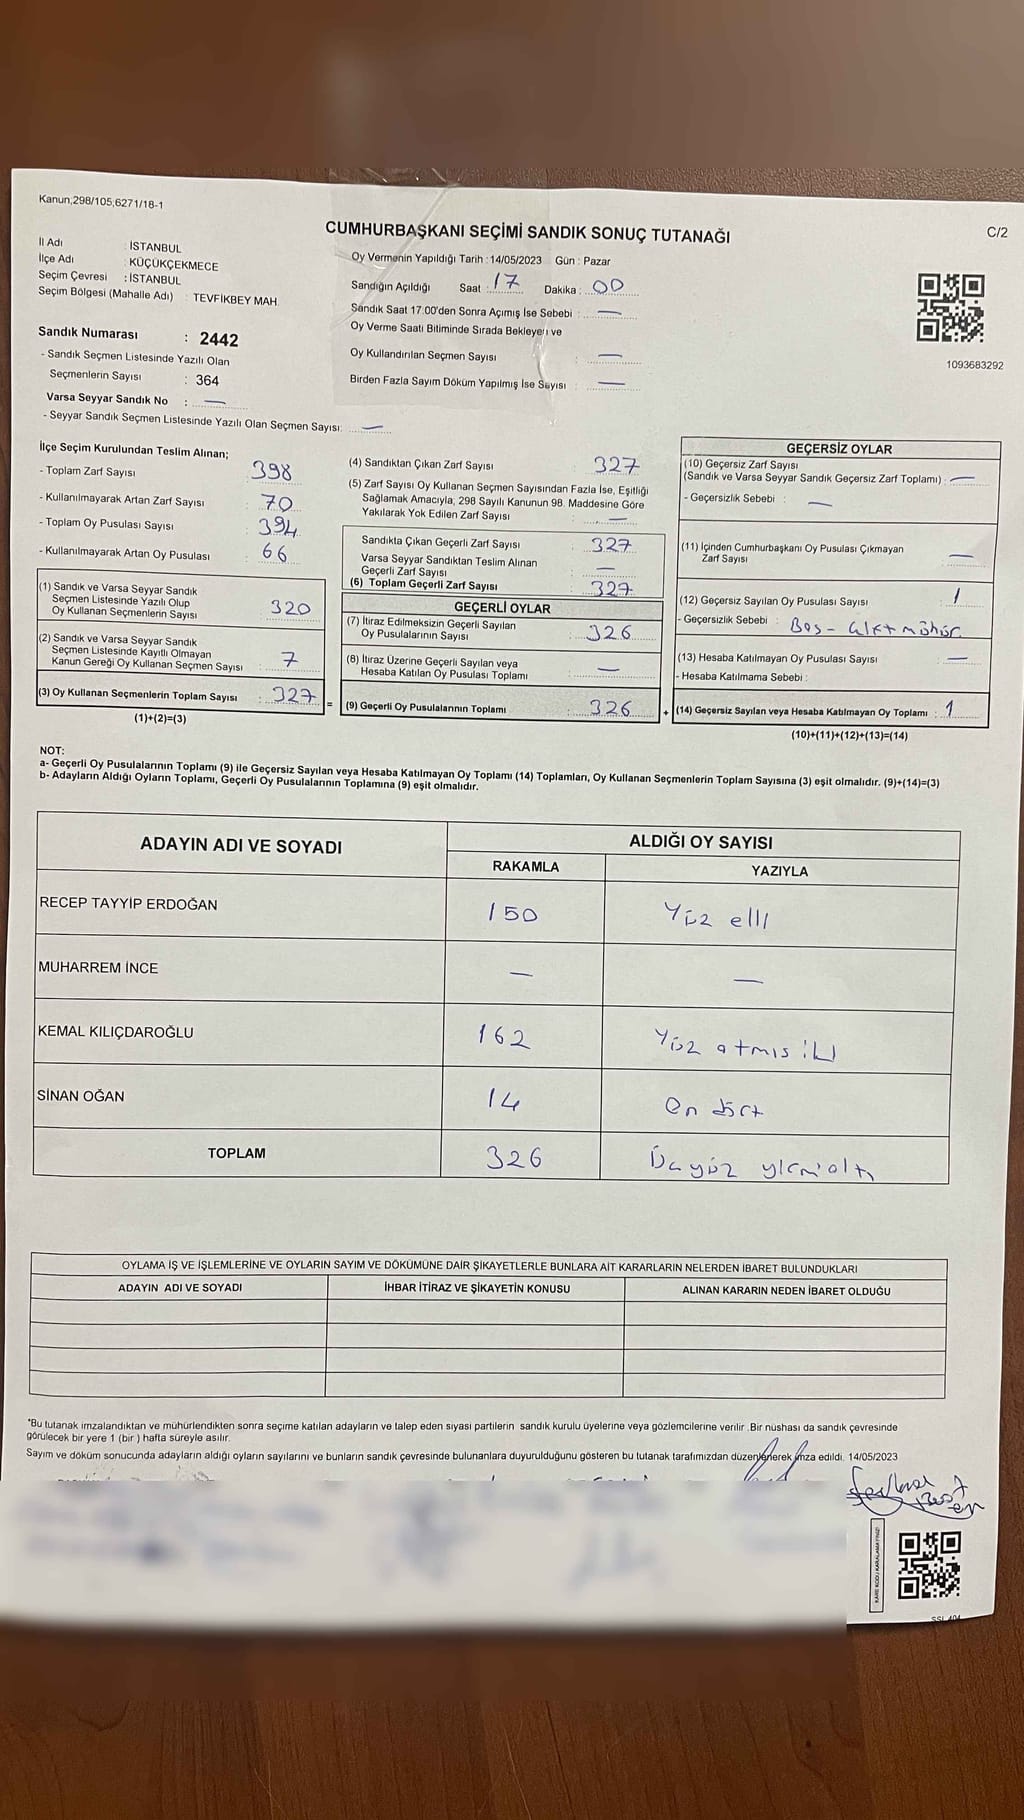 Kanun;298/105;6271/18-1
CUMHURBAŞKANI SEÇİMİ SANDIK SONUÇ TUTANAĞI
C/2
İl Adı : İSTANBUL
İlçe Adı : KÜÇÜKÇEKMECE
Seçim Çevresi : İSTANBUL
Seçim Bölgesi (Mahalle Adı) : TEVFİKBEY MAH.
Sandık Numarası : 2442
- Sandık Seçmen Listesinde Yazılı Olan
Seçmenlerin Sayısı : 364
Varsa Seyyar Sandık No : —
- Seyyar Sandık Seçmen Listesinde Yazılı Olan Seçmen Sayısı: —
Oy Vermenin Yapıldığı Tarih : 14/05/2023 Gün : Pazar
Sandığın Açıldığı Saat : 17 Dakika : 00
Sandık Saat 17:00'den Sonra Açımış İse Sebebi : —
Oy Verme Saati Bitiminde Sırada Bekleyen ve
Oy Kullandırılan Seçmen Sayısı : —
Birden Fazla Sayım Döküm Yapılmış İse Sayısı : —
1093683292
İlçe Seçim Kurulundan Teslim Alınan;
- Toplam Zarf Sayısı : 398
- Kullanılmayarak Artan Zarf Sayısı : 70
- Toplam Oy Pusulası Sayısı : 394
- Kullanılmayarak Artan Oy Pusulası : 66
(1) Sandık ve Varsa Seyyar Sandık
Seçmen Listesinde Yazılı Olup
Oy Kullanan Seçmenlerin Sayısı : 320
(2) Sandık ve Varsa Seyyar Sandık
Seçmen Listesinde Kayıtlı Olmayan
Kanun Gereği Oy Kullanan Seçmen Sayısı : 7
(3) Oy Kullanan Seçmenlerin Toplam Sayısı : 327
(1)+(2)=(3)
=
(4) Sandıktan Çıkan Zarf Sayısı : 327
(5) Zarf Sayısı Oy Kullanan Seçmen Sayısından Fazla İse, Eşitliği
Sağlamak Amacıyla, 298 Sayılı Kanunun 98. Maddesine Göre
Yakılarak Yok Edilen Zarf Sayısı : —
Sandıkta Çıkan Geçerli Zarf Sayısı : 327
Varsa Seyyar Sandıktan Teslim Alınan
Geçerli Zarf Sayısı : —
(6) Toplam Geçerli Zarf Sayısı : 327
GEÇERLİ OYLAR
(7) İtiraz Edilmeksizin Geçerli Sayılan
Oy Pusulalarının Sayısı : 326
(8) İtiraz Üzerine Geçerli Sayılan veya
Hesaba Katılan Oy Pusulası Toplamı : —
(9) Geçerli Oy Pusulalarının Toplamı : 326
+
GEÇERSİZ OYLAR
(10) Geçersiz Zarf Sayısı
(Sandık ve Varsa Seyyar Sandık Geçersiz Zarf Toplamı) : —
- Geçersizlik Sebebi : —
(11) İçinden Cumhurbaşkanı Oy Pusulası Çıkmayan
Zarf Sayısı : —
(12) Geçersiz Sayılan Oy Pusulası Sayısı : 1
- Geçersizlik Sebebi : Boş - çift mühür
(13) Hesaba Katılmayan Oy Pusulası Sayısı : —
- Hesaba Katılmama Sebebi :
(14) Geçersiz Sayılan veya Hesaba Katılmayan Oy Toplamı : 1
(10)+(11)+(12)+(13)=(14)
NOT:
a- Geçerli Oy Pusulalarının Toplamı (9) ile Geçersiz Sayılan veya Hesaba Katılmayan Oy Toplamı (14) Toplamları, Oy Kullanan Seçmenlerin Toplam Sayısına (3) eşit olmalıdır. (9)+(14)=(3)
b- Adayların Aldığı Oyların Toplamı, Geçerli Oy Pusulalarının Toplamına (9) eşit olmalıdır.
ADAYIN ADI VE SOYADI ALDIĞI OY SAYISI
RAKAMLA YAZIYLA
RECEP TAYYİP ERDOĞAN 150 Yüz elli
MUHARREM İNCE — —
KEMAL KILIÇDAROĞLU 162 Yüz atmış iki
SİNAN OĞAN 14 On dört
TOPLAM 326 Üçyüz yirmialtı
OYLAMA İŞ VE İŞLEMLERİNE VE OYLARIN SAYIM VE DÖKÜMÜNE DAİR ŞİKAYETLERLE BUNLARA AİT KARARLARIN NELERDEN İBARET BULUNDUKLARI
ADAYIN ADI VE SOYADI İHBAR İTİRAZ VE ŞİKAYETİN KONUSU ALINAN KARARIN NEDEN İBARET OLDUĞU
*Bu tutanak imzalandıktan ve mühürlendikten sonra seçime katılan adayların ve talep eden siyasi partilerin sandık kurulu üyelerine veya gözlemcilerine verilir. Bir nüshası da sandık çevresinde
görülecek bir yere 1 (bir) hafta süreyle asılır.
Sayım ve döküm sonucunda adayların aldığı oyların sayılarını ve bunların sandık çevresinde bulunanlara duyurulduğunu gösteren bu tutanak tarafımızdan düzenlenerek imza edildi. 14/05/2023
KARE KODU KARALAMAYINIZ!